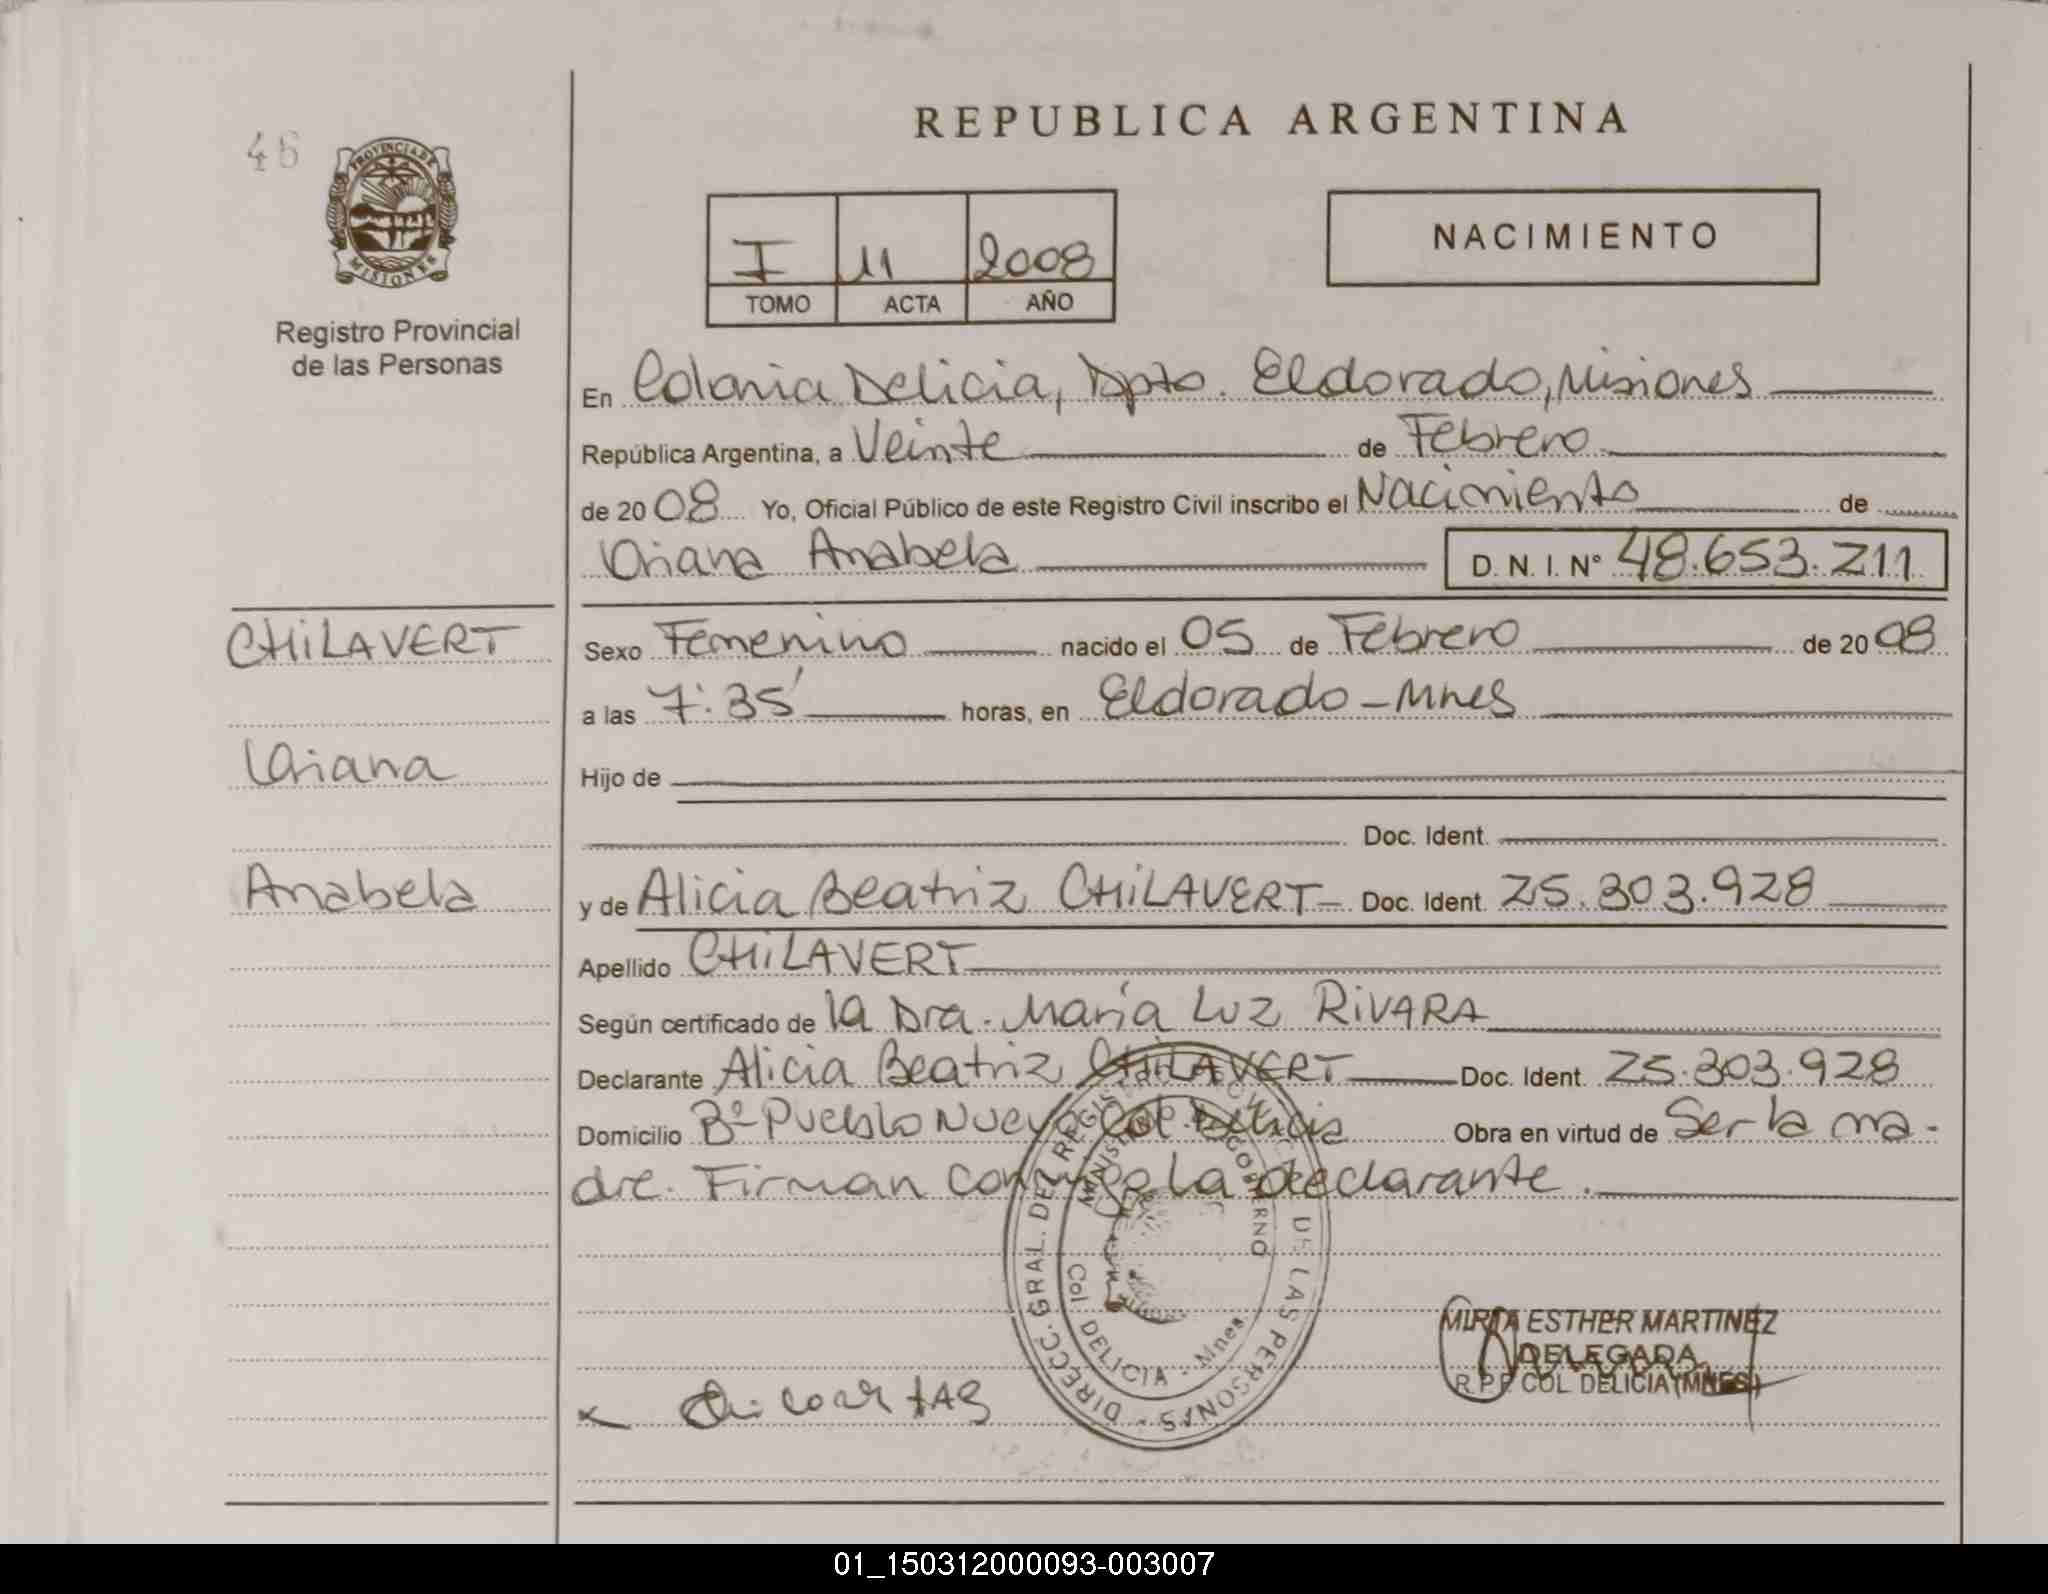 46
REPUBLICA ARGENTINA
PROVINCIA DE
MISIONES
Registro Provincial
de las Personas
I 11 2008
TOMO ACTA AÑO
NACIMIENTO
En Colonia Delicia, Dpto. Eldorado, Misiones
República Argentina, a Veinte de Febrero
de 2008 Yo, Oficial Público de este Registro Civil inscribo el Nacimiento de
Oriana Anabela D. N. I. Nº 48.653.211
CHiLAVERT
Oriana
Anabela
Sexo Femenino nacido el 05 de Febrero de 2008
a las 7:35' horas, en Eldorado - Mnes
Hijo de
Doc. Ident.
y de Alicia Beatriz CHiLAVERT - Doc. Ident. 25.303.928
Apellido CHiLAVERT
Según certificado de la Dra. María Luz RiVARA
Declarante Alicia Beatriz CHiLAVERT Doc. Ident. 25.303.928
Domicilio Bº Pueblo Nuevo Col. Delicia Obra en virtud de Ser la ma-
dre. Firman conmigo la declarante.
DIRECC. GRAL. DEL REGIST. DE LAS PERSONAS
MINIST. DE GOBIERNO
Col. DELICIA - Mnes.
MIRTA ESTHER MARTINEZ
DELEGADA
R.P.P. COL. DELICIA (MNES.)
01_150312000093-003007